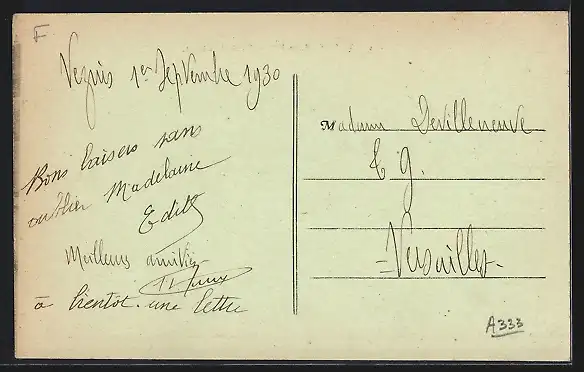 F
Vezins 1er Septembre 1930
Bons baisers sans
oublier Madelaine
Edith
Meilleures amitiés
à bientôt une lettre
Madame Devilleneuve
E g.
- Versailles -
A333